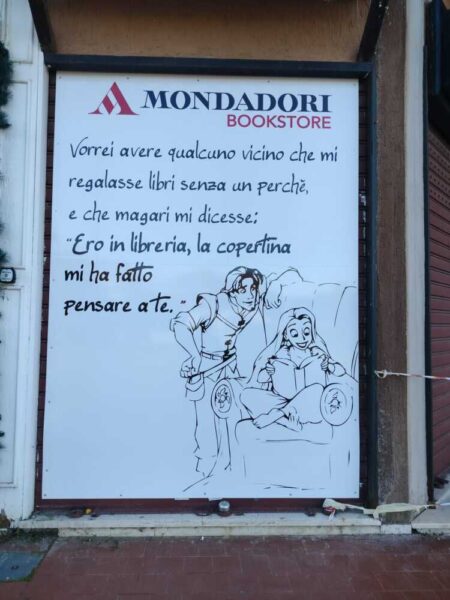 MONDADORI
BOOKSTORE
Vorrei avere qualcuno vicino che mi
regalasse libri senza un perchè,
e che magari mi dicesse:
"Ero in libreria, la copertina
mi ha fatto
pensare a te."